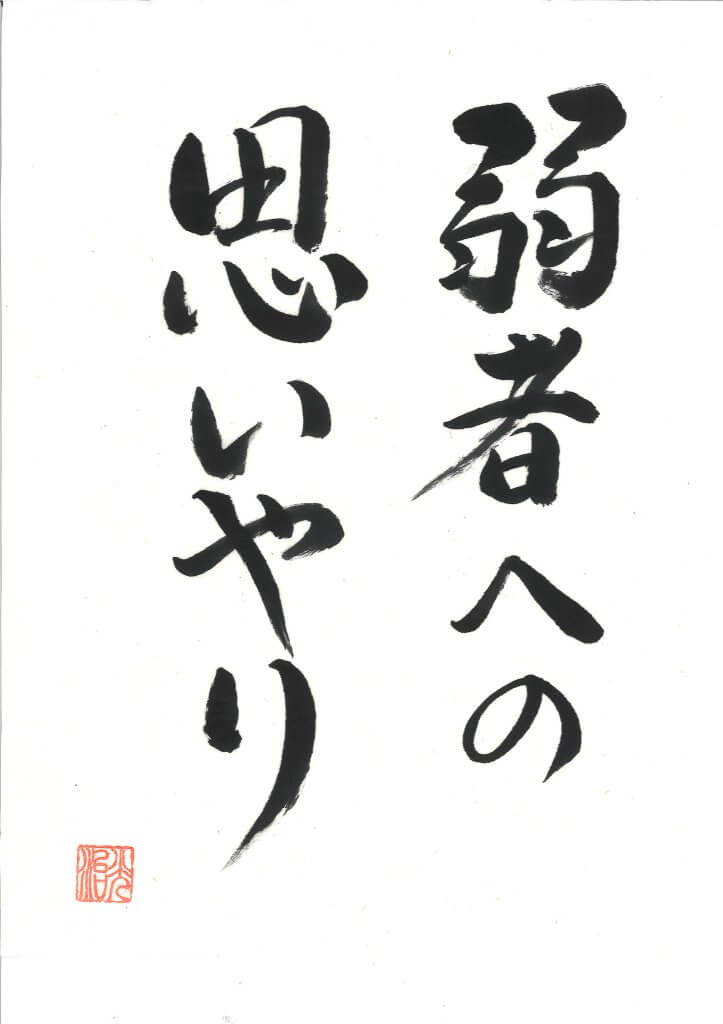 弱者への
思いやり